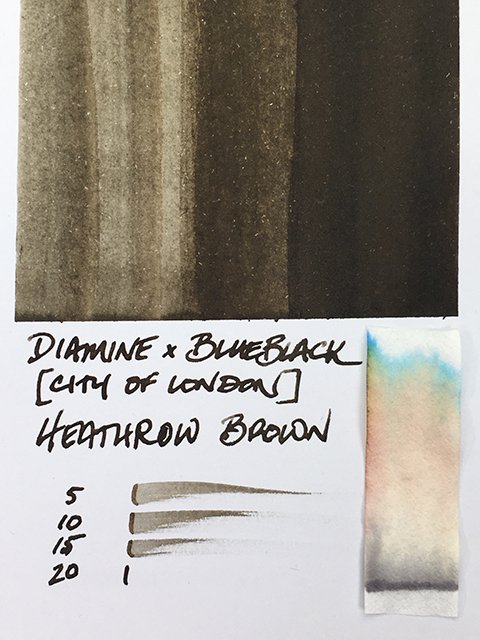 DIAMINE x BLUEBLACK
[CITY OF LONDON]
HEATHROW BROWN
5
10
15
20